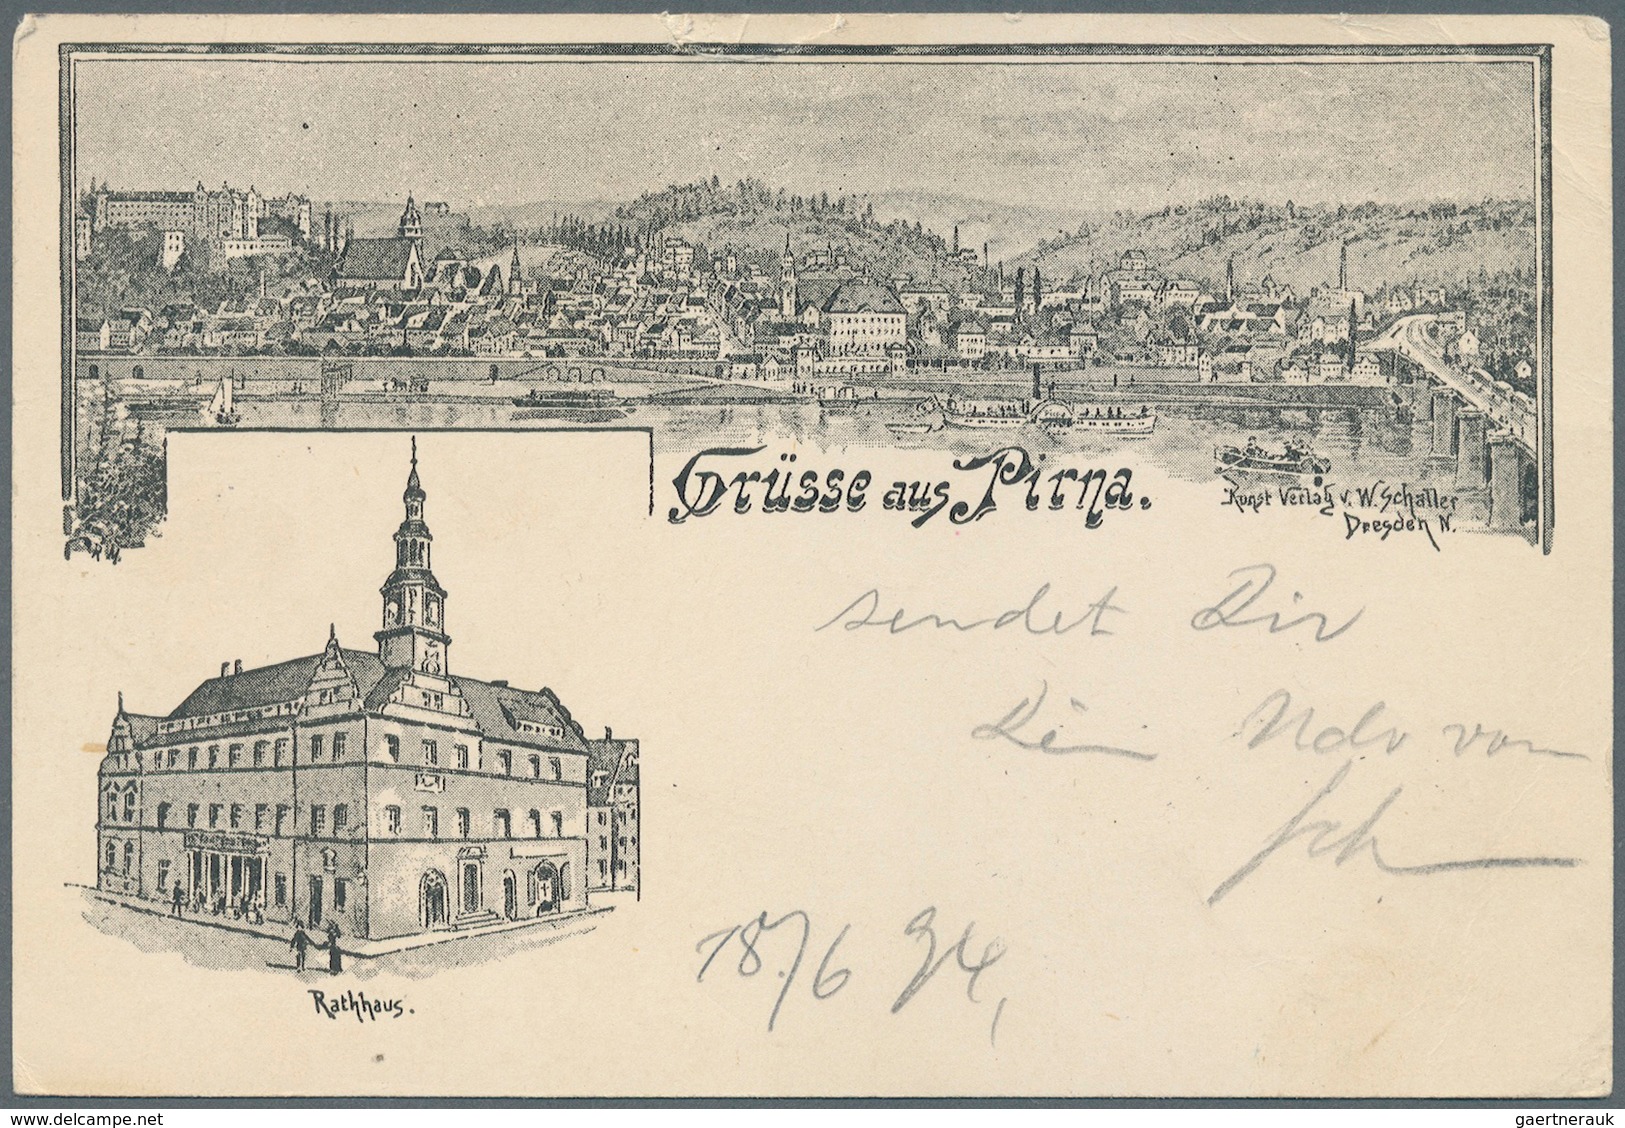 Grüsse aus Pirna.
Kunst Verlag v. W. Schaller
Dresden N.
R M.
sendet Dir
Dein von
18/6 94,
Rathhaus.
www.delcampe.net
gaertnerauk